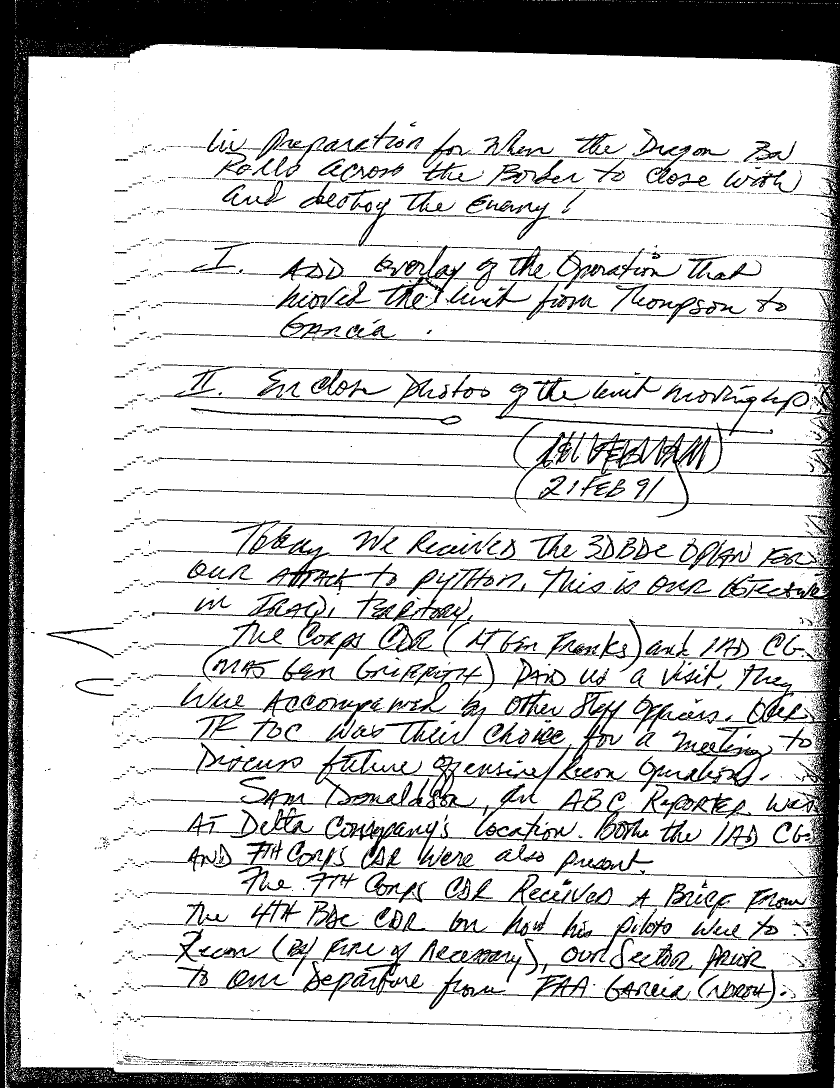 in preparation for when the Dragon Bn
Rolls across the Border to close with
and destroy the enemy!
I. ADD overlay of the Operation that
moved the unit from Thompson to
Garcia.
II. Enclose photos of the unit moving up
21 FEB 91
Today We Received the 3D BDE OPLAN FOR
OUR ATTACK to PYTHON. This is OUR OBJECTIVE
in IRAQI TERRITORY.
The Corps CDR (LT Gen Franks) and 1AD CG
(MAJ Gen GRIFFITH) PAID us a visit. They
Were Accompanied by other Staff Officers. OUR
TF TOC was their choice for a meeting to
Discuss future offensive/Recon Operations.
SAM Donaldson, An ABC REPORTER was
AT Delta Company's location. Both the 1AD CG
AND 7TH Corps CDR Were also present.
The 7TH Corps CDR Received A Brief From
the 4TH Bde CDR on how his pilots were to
Recon (By Fire if necessary), our Sector PRIOR
To our Departure from FAA GARCIA (NORTH).